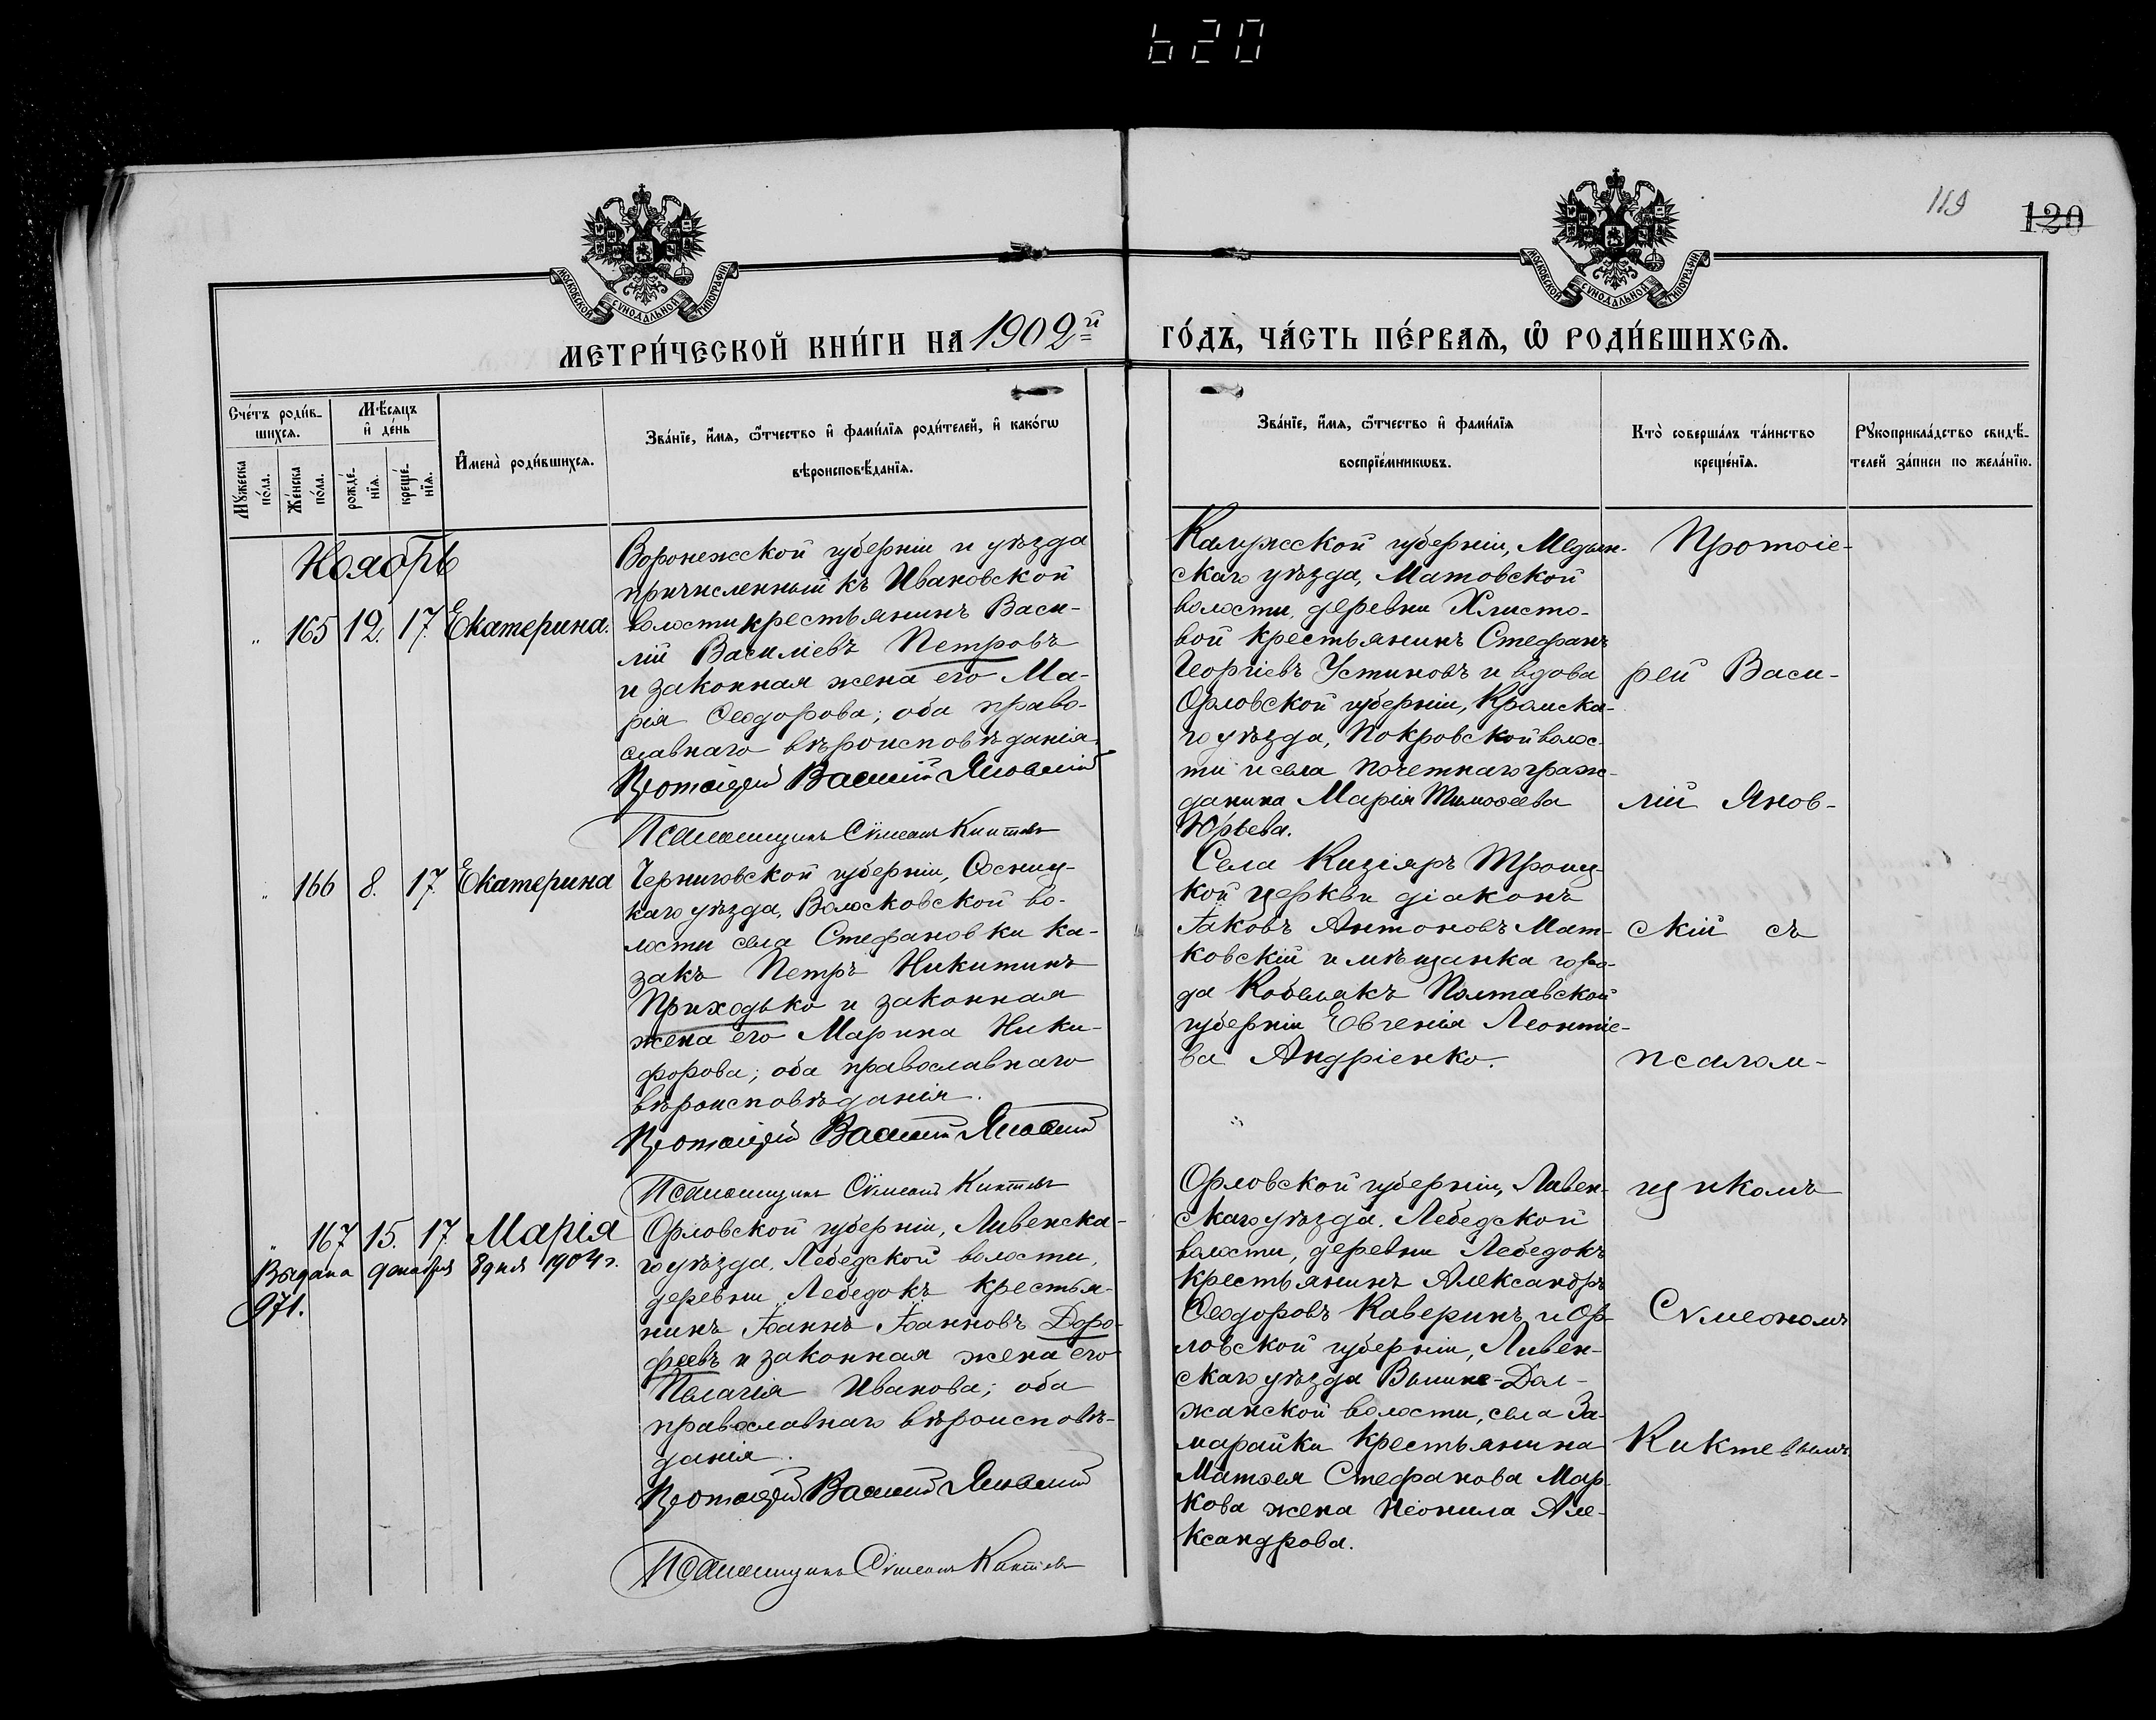 620
119
120
МОСКОВСКОЙ СѴНОДАЛЬНОЙ ТИПОГРАФІИ
МОСКОВСКОЙ СѴНОДАЛЬНОЙ ТИПОГРАФІИ
МЕТРИ́ЧЕСКОЙ КНИ́ГИ НА 1902й ГО́ДЪ, ЧА́СТЬ ПЕ́РВАѦ, Ѡ РОДИ́ВШИХСѦ.
Сче́тъ роди́в-
шихся.
Мѣ́сяцъ
и де́нь
Му́жеска
по́ла.
Же́нска
по́ла.
рожде́-
нїя.
креще́-
нїя.
И҆мена̀ роди́вшихся.
Зва́нїе, и҆́мя, ѻ҆́тчество и҆ фами́лїя роди́телей, и҆ како́гѡ
вѣроисповѣ́данїя.
Зва́нїе, и҆́мя, ѻ҆́тчество и҆ фами́лїя
воспрїе́мникѡвъ.
Кто̀ соверша́лъ та́инство
креще́нїя.
Рꙋкоприкла́дство свидѣ́-
телей за́писи по жела́нїю.
Ноябрь
" 165 12. 17. Екатерина.
Воронежской губерніи и уѣзда
причисленный къ Ивановской
волости крестьянинъ Васи-
лій Василіевъ Петровъ
и законная жена его Ма-
рія Ѳеодорова; оба право-
славнаго вѣроисповѣданія.
Протоіерей Василій Яновскій
Псаломщикъ Сѵмеонъ Киктевъ
Калужской губерніи, Медын-
скаго уѣзда, Матовской
волости, деревни Хлисто-
вой крестьянинъ Стефанъ
Георгіевъ Устиновъ и вдова
Орловской губерніи, Кромска-
го уѣзда, Покровской волос-
ти и села почетнаго граж-
данина Марія Тимоѳеева
Юрьева.
" 166 8. 17. Екатерина
Черниговской губерніи, Сосниц-
каго уѣзда, Волосковской во-
лости села Стефановки ка-
закъ Петръ Никитинъ
Приходько и законная
жена его Марина Ники-
форова; оба православнаго
вѣроисповѣданія.
Протоіерей Василій Яновскій
Псаломщикъ Сѵмеонъ Киктевъ
Села Кизіяръ Троиц-
кой церкви діаконъ
Іаковъ Антоновъ Мат-
ковскій и мѣщанка горо-
да Кобелякъ Полтавской
губерніи Евгенія Леонтіе-
ва Андріенко.
" 167 15. 17. Марія
Выдана декабря 8 дня 1904 г.
971.
Орловской губерніи, Ливенска-
го уѣзда, Лебедской волости,
деревни Лебедокъ крестья-
нинъ Іоаннъ Іоанновъ Доро-
феевъ и законная жена его
Пелагія Иванова; оба
православнаго вѣроисповѣ-
данія.
Протоіерей Василій Яновскій
Псаломщикъ Сѵмеонъ Киктевъ
Орловской губерніи, Ливен-
скаго уѣзда, Лебедской
волости, деревни Лебедокъ
крестьянинъ Александръ
Ѳеодоровъ Каверинъ и Ор-
ловской губерніи, Ливен-
скаго уѣзда Вышне-Дол-
жанской волости, села За-
марайки крестьянина
Матѳея Стефанова Мар-
кова жена Неонила Але-
ксандрова.
Протоіе-
рей Васи-
лій Янов-
скій съ
псалом-
щикомъ
Сѵмеономъ
Киктевымъ